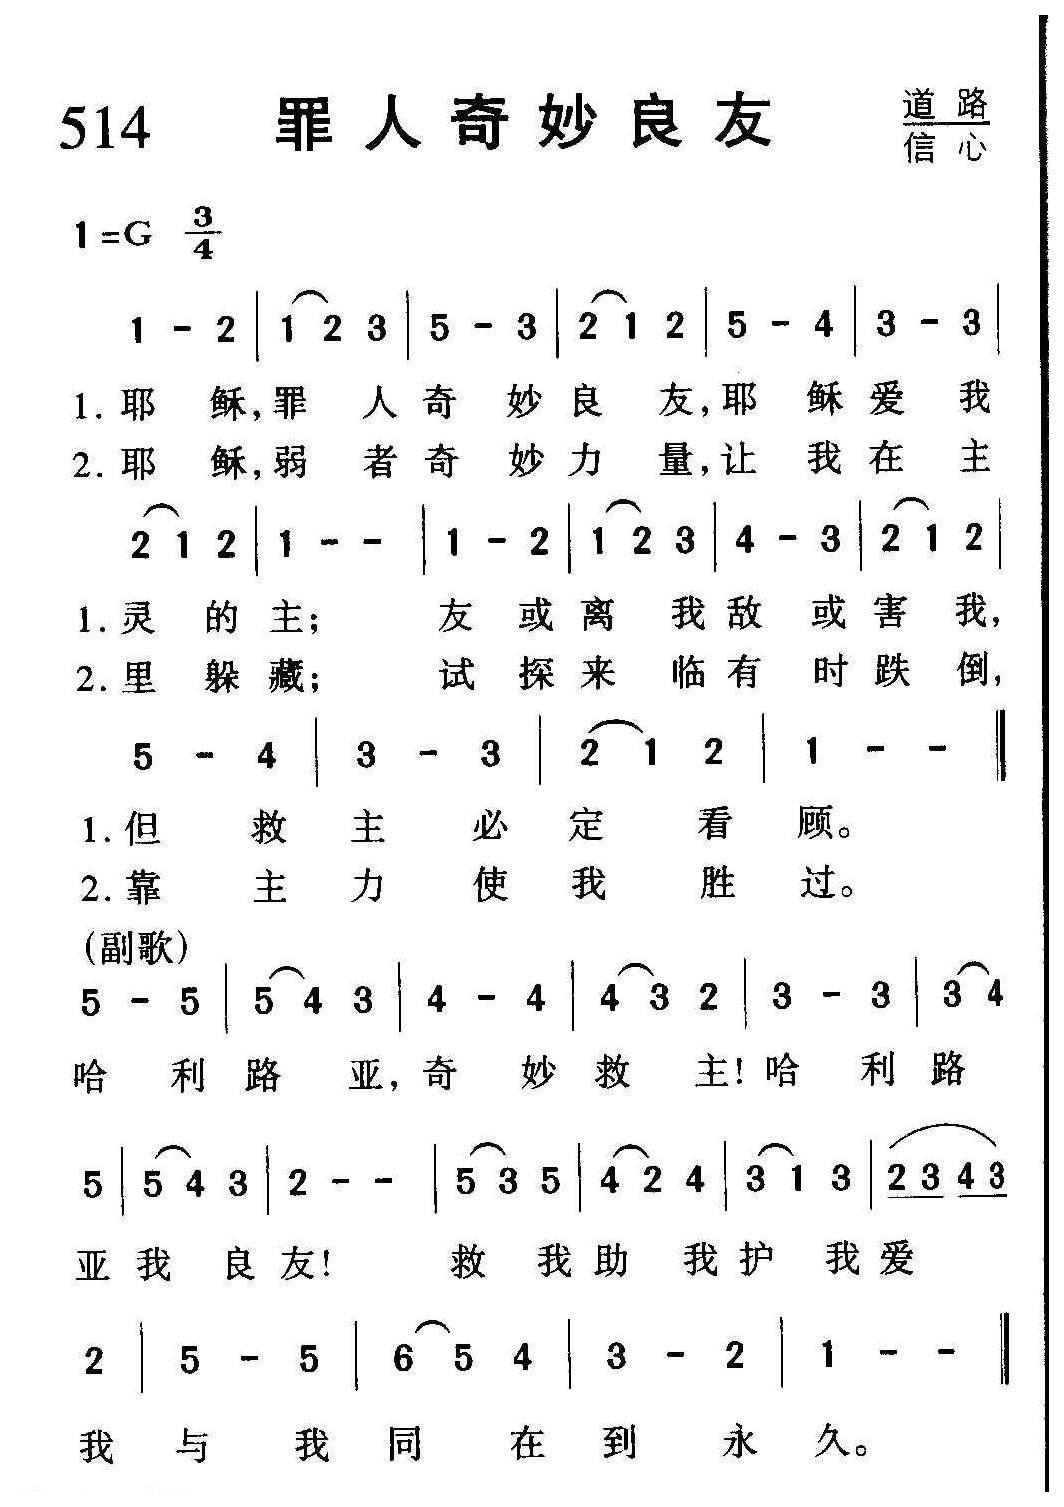 514 罪人奇妙良友 道路
信心
1=G 3/4
1 - 2 | 1 2 3 | 5 - 3 | 2 1 2 | 5 - 4 | 3 - 3 |
1. 耶 稣, 罪 人 奇 妙 良 友, 耶 稣 爱 我
2. 耶 稣, 弱 者 奇 妙 力 量, 让 我 在 主
2 1 2 | 1 - - | 1 - 2 | 1 2 3 | 4 - 3 | 2 1 2 |
1. 灵 的 主; 友 或 离 我 敌 或 害 我,
2. 里 躲 藏; 试 探 来 临 有 时 跌 倒,
5 - 4 | 3 - 3 | 2 1 2 | 1 - - ‖
1. 但 救 主 必 定 看 顾。
2. 靠 主 力 使 我 胜 过。
(副歌)
5 - 5 | 5 4 3 | 4 - 4 | 4 3 2 | 3 - 3 | 3 4
哈 利 路 亚, 奇 妙 救 主! 哈 利 路
5 | 5 4 3 | 2 - - | 5 3 5 | 4 2 4 | 3 1 3 | 2 3 4 3
亚 我 良 友! 救 我 助 我 护 我 爱
2 | 5 - 5 | 6 5 4 | 3 - 2 | 1 - - ‖
我 与 我 同 在 到 永 久。